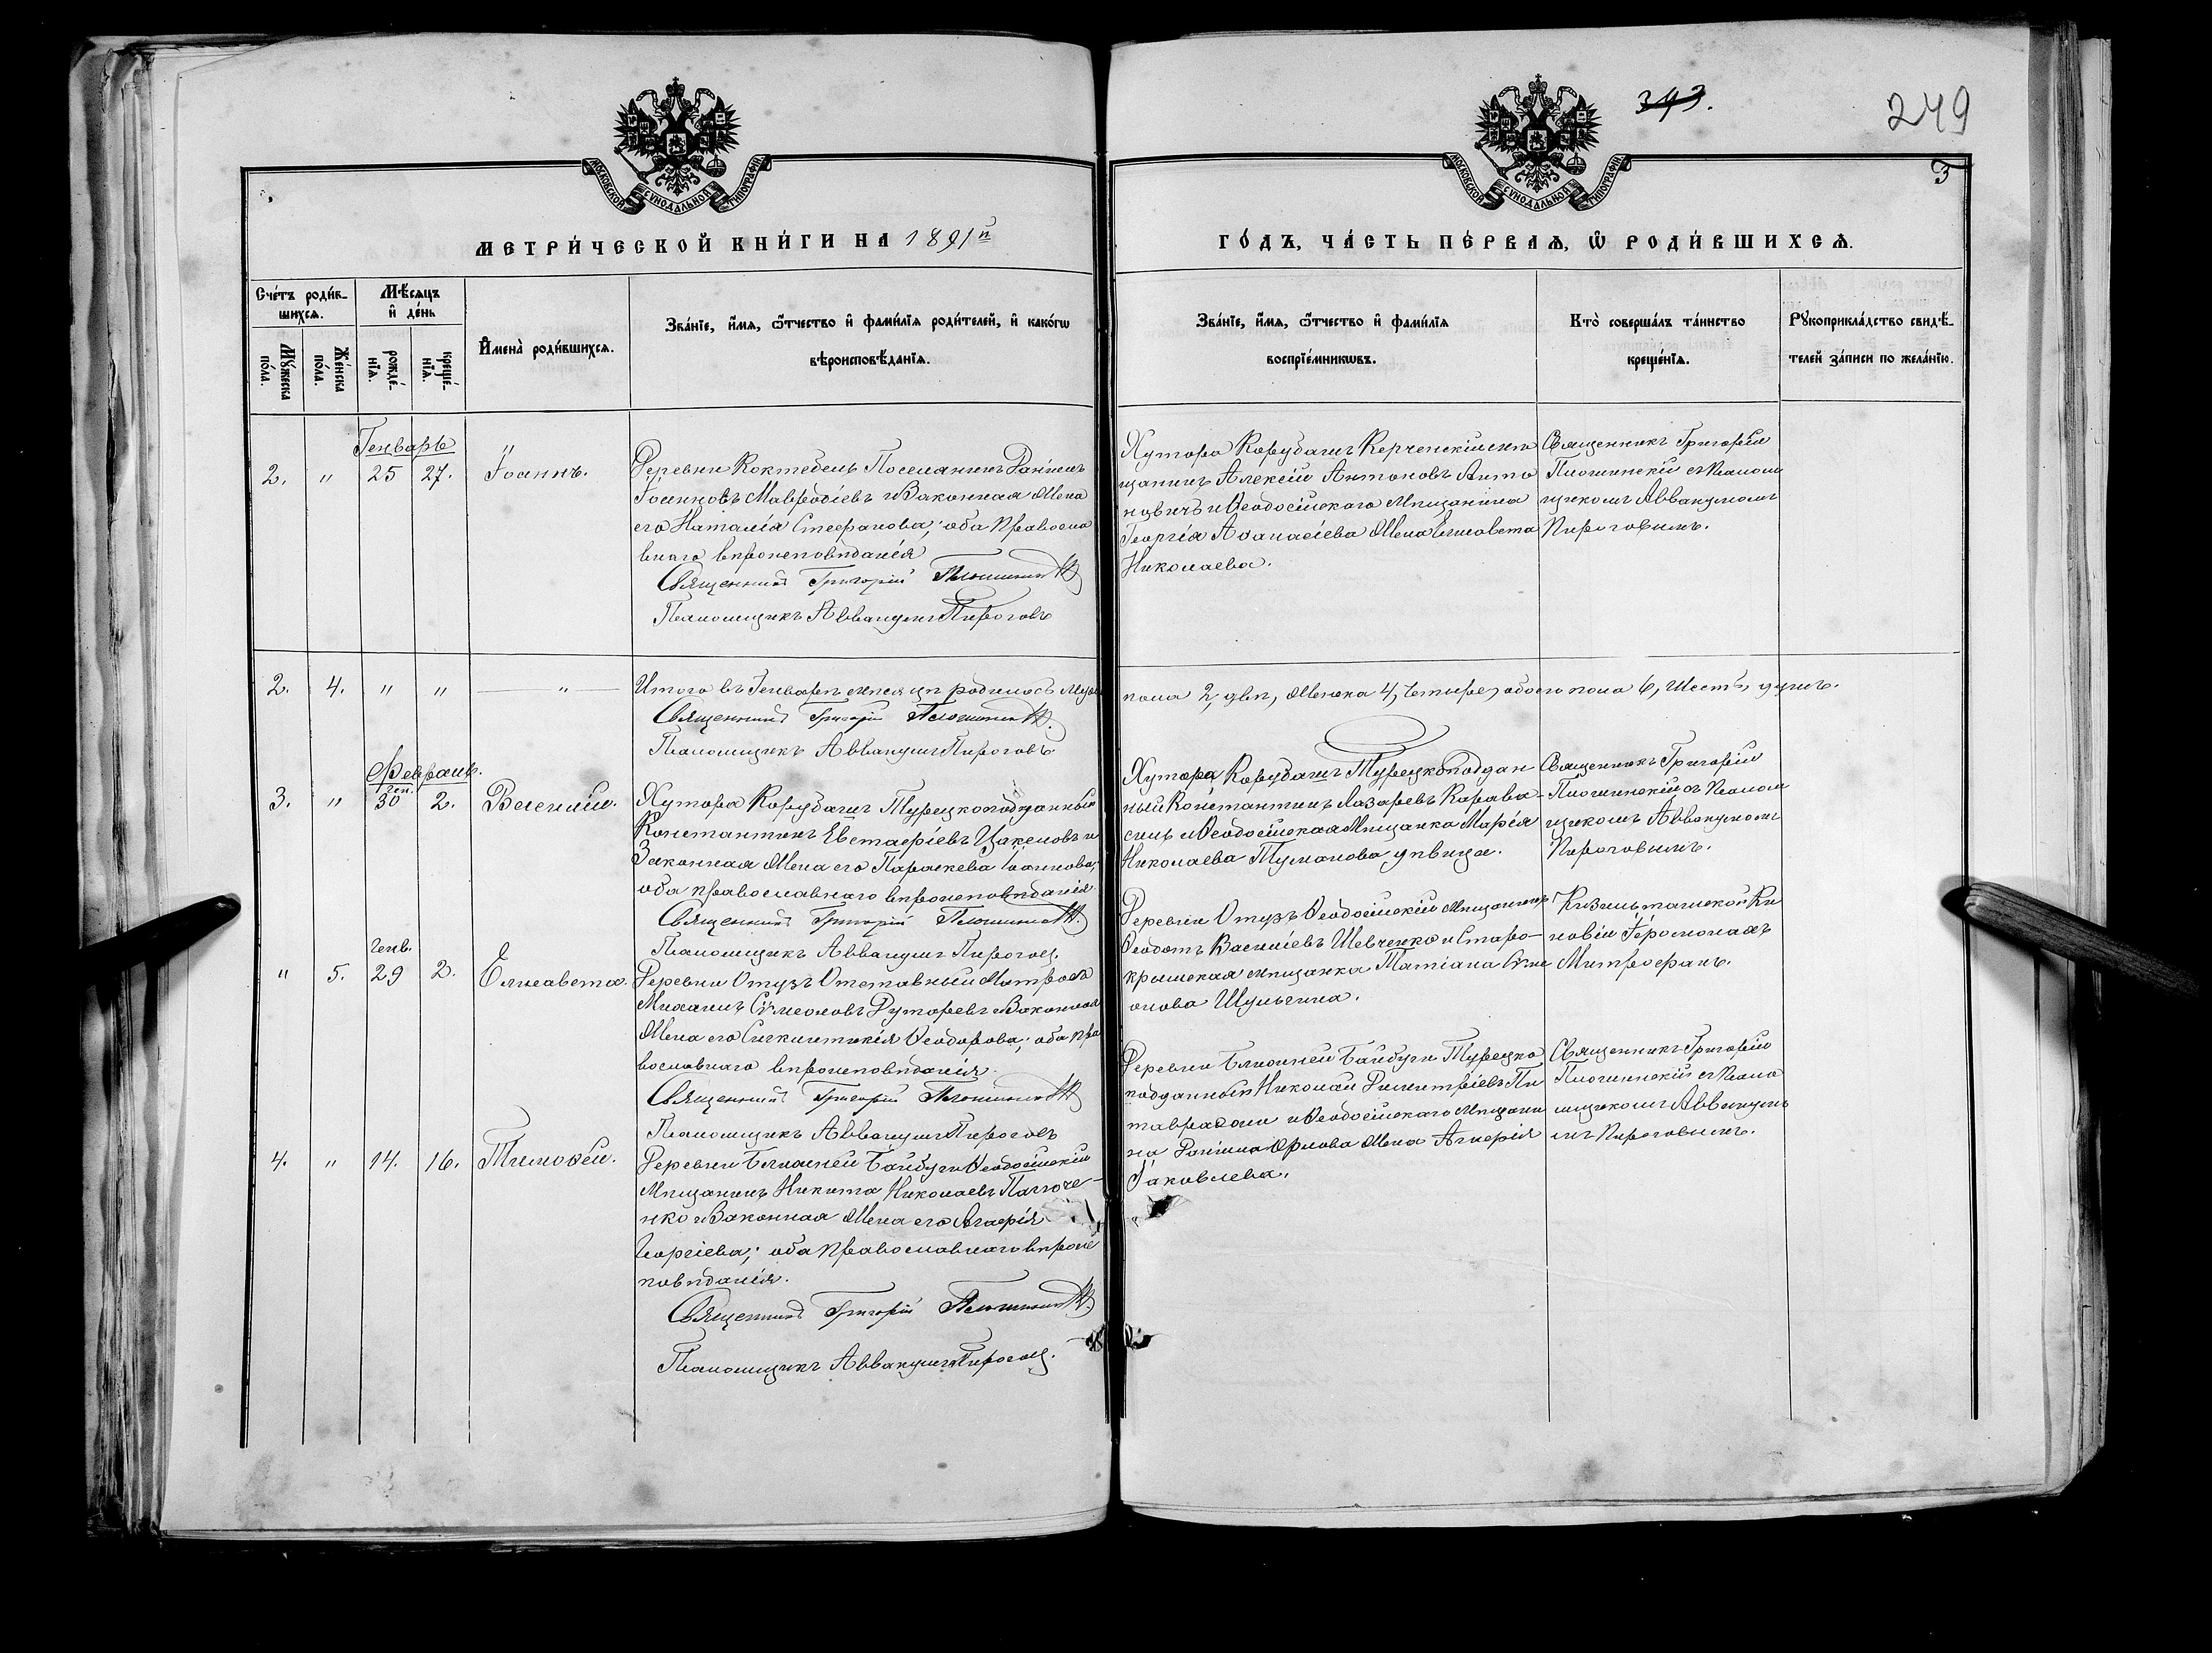 393.
249
3
МОСКОВСКОЙ СѴНОДАЛЬНОЙ ТИПОГРАФІИ
МОСКОВСКОЙ СѴНОДАЛЬНОЙ ТИПОГРАФІИ
МЕТРИ́ЧЕСКОЙ КНИ́ГИ НА 1891й
ГО́ДЪ, ЧА́СТЬ ПЕ́РВАѦ, Ѡ҆ РОДИ́ВШИХСѦ.
Сче́тъ роди́в-
шихсѧ.
Мꙋ́жеска по́ла.
Же́нска по́ла.
Мѣ́сѧцъ
и҆ де́нь
рожде́-
нїѧ.
креще́-
нїѧ.
И҆мена̀ роди́вшихсѧ.
Зва́нїе, и҆́мѧ, ѻ҆́тчество и҆ фами́лїѧ роди́телей, и҆ како́гѡ
вѣроисповѣ́данїѧ.
Зва́нїе, и҆́мѧ, ѻ҆́тчество и҆ фами́лїѧ
воспрїе́мникѡвъ.
Кто̀ соверша́лъ та́инство
креще́нїѧ.
Рꙋкоприкла́дство свидѣ́-
телей за́писи по жела́нїю.
Генварь
2. " 25 27. Іоаннъ.
Деревни Коктебель Поселянинъ Даніилъ
Іоанновъ Мавродіевъ и Законная Жена
его Наталія Стефанова; оба Правосла
внаго вѣроисповѣданія
Священникъ Григорій
Псаломщикъ Аввакумъ Пироговъ
Хутора Корубашъ Керченскій мѣ
щанинъ Алексій Антоновъ Анто
новичъ и Ѳеодосійскаго Мѣщанина
Георгія Аѳанасіева Жена Елисавета
Николаева.
Священникъ Григорій
съ Псалом
щикомъ Аввакумомъ
Пироговымъ.
2. 4. " " — " —
Итого въ Генварѣ мѣсяцѣ родилось муж.
пола 2, двѣ, Женска 4, четыре, обоего пола 6, шесть душъ.
Священникъ Григорій
Псаломщикъ Аввакумъ Пироговъ
Февраль.
3. " ген. 30 2. Василій.
Хутора Корубашъ Турецкоподданный
Константинъ Евстафіевъ и
Законная Жена его Параскева Іоаннова;
оба православнаго вѣроисповѣданія
Священникъ Григорій
Псаломщикъ Аввакумъ Пироговъ.
Хутора Корубашъ Турецкоподдан
ный Константинъ Лазаревъ
и Ѳеодосійская Мѣщанка Марія
Николаева Туманова дѣвица.
Священникъ Григорій
съ Псалом
щикомъ Аввакумомъ
Пироговымъ.
" 5. генв. 29 2. Елисавета.
Деревни Отузъ Отставный Матросъ
Михаилъ Сѵмеоновъ и Законная
Жена его Синклитикія Ѳеодорова; оба пра
вославнаго вѣроисповѣданія.
Священникъ Григорій
Псаломщикъ Аввакумъ Пироговъ
Деревни Отузъ Ѳеодосійскій Мѣщанинъ
Ѳеодотъ Василіевъ Шевченко и Старо-
крымская мѣщанка Татіана Сѵме
онова Шульгина.
Кизильташской Ки
новіи Іеромонахъ
Митрофанъ.
4. " 14. 16. Тимоѳей.
Деревни Ближней Байбуги Ѳеодосійскій
Мѣщанинъ Никита Николаевъ
нко и Законная Жена его Агафія
Георгіева; оба Православнаго вѣроис
повѣданія.
Священникъ Григорій
Псаломщикъ Аввакумъ Пироговъ.
Деревни Ближней Байбуги Турецко
подданный Николай Димитріевъ Пи
и Ѳеодосійскаго Мѣщани
на Орлова Жена
Іаковлева.
Священникъ Григорій
съ Псало
мщикомъ Аввакумо
мъ Пироговымъ.